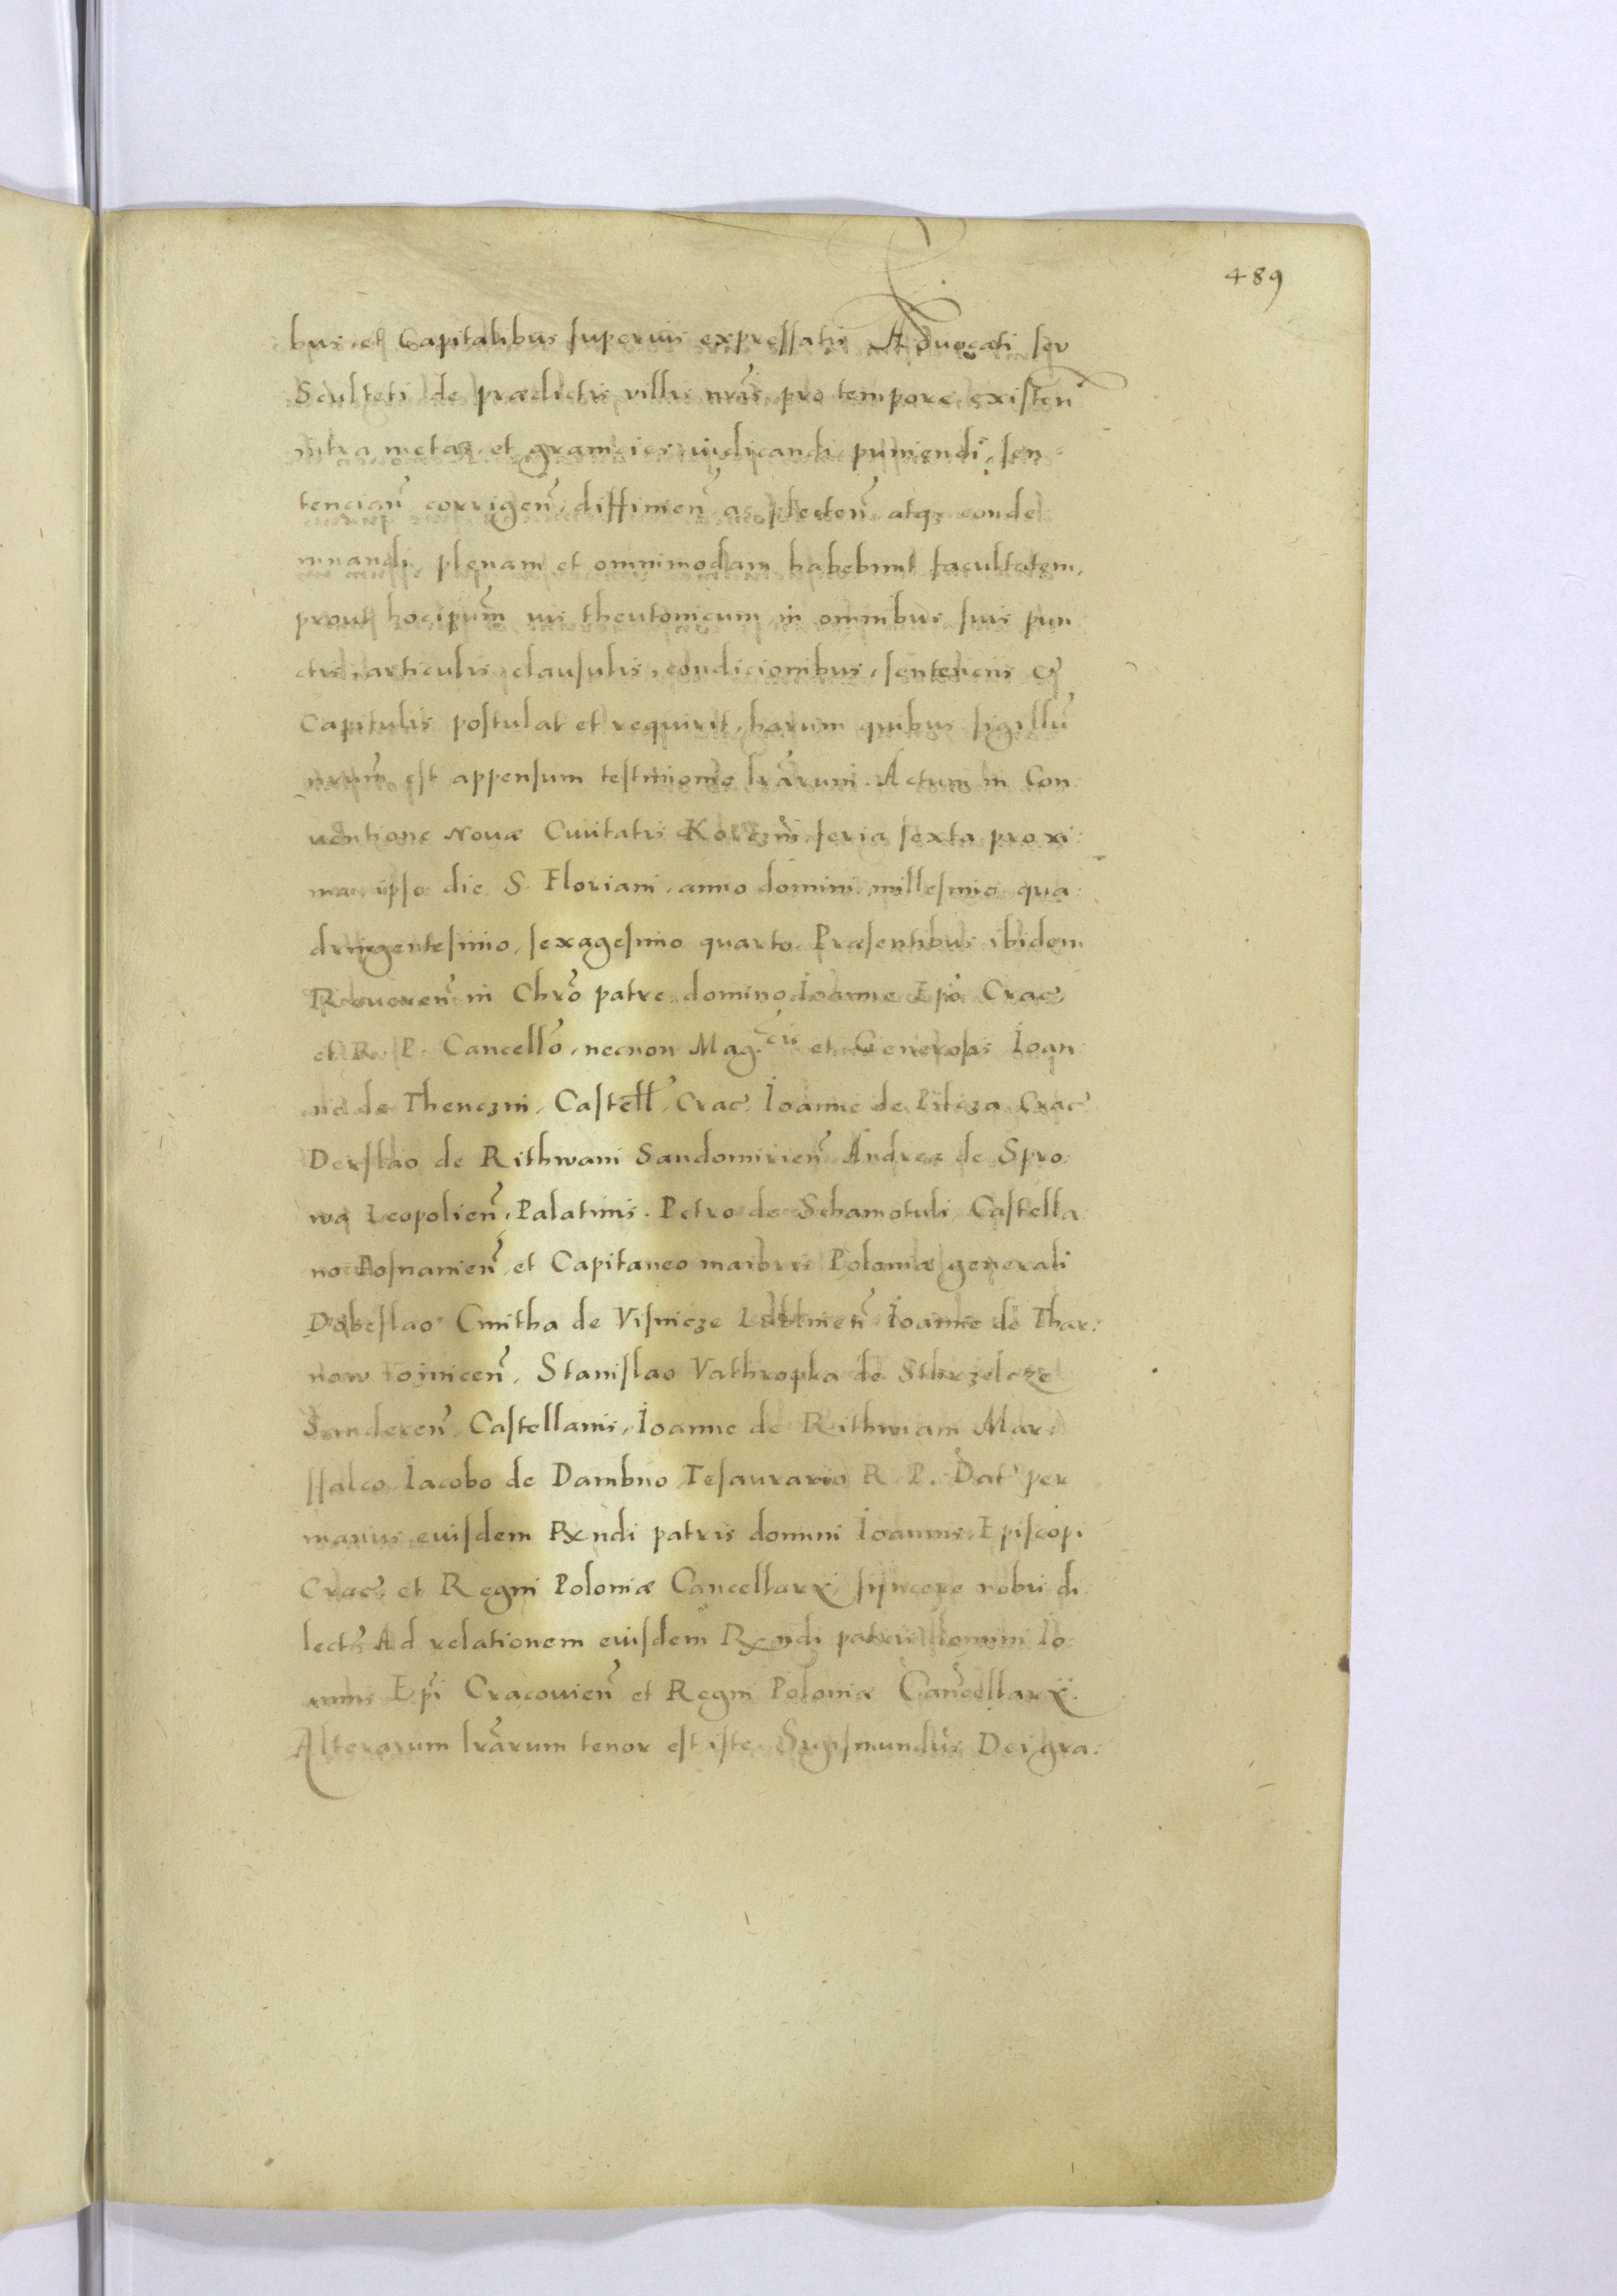 489
bus et Capitalibus superius expressatis Advocati seu
Sculteti de prædictis villis nr̃is pro tempore existen̄
intra metas et granicies iudicandi puniendi, sen
tencian̄ corrigen̄, diffinien̄ ac plecten̄ atq; conde
mnandi, plenam et omnimodam habebunt facultatem,
prout hoc ip̄um ius theutonicum in omnibus suis pun
ctis, articulis, clausulis, condicionibus, sentenciis &
Capitulis postulat et requirit, harum quibus sigillū
nrūm est appensum testimonio lrārum. Actum in Con
ventione Novæ Civitatis Korczin, feria sexta proxi
ma, ipso die S. Floriani, anno domini millesimo qua
dringentesimo, sexagesimo quarto. Præsentibus ibidem
Reveren̄ in Chrō patre domino Ioanne Epō Crac̄
et R. P. Cancellō, necnon Mag.cis et Generosis Ioan
ne de Thenczni, Castell̄, Crac̄ Ioanne de Pilcza Crac̄
Derslao de Rithwani Sandomirien̄ Andrea de Spro
wa Leopolien̄, Palatinis. Petro de Schamotuli Castella
no Posnanien̄, et Capitaneo maioris Poloniæ generali
Dobeslao Cmitha de Visnicze Lublinen̄ Ioanne de Thar:
now Voinicen̄, Stanislao Vathropka de Sthrzelcze
Sandecen̄ Castellanis, Ioanne de Rithwiani Mar:
ssalco Iacobo de Dambno Tesaurario R. P. Dat̄ per
manus eiusdem Rxndi patris domini Ioannis Episcopi
Crac̄ et Regni Poloniæ Cancellarÿ, syncere nobis di
lectī Ad relationem eiusdem Rxndi patris domini Io
annis Epī Cracovien̄ et Regni Poloniæ Cancellarÿ.
Alterarum lrārum tenor est iste. Sigismundus Dei gra: